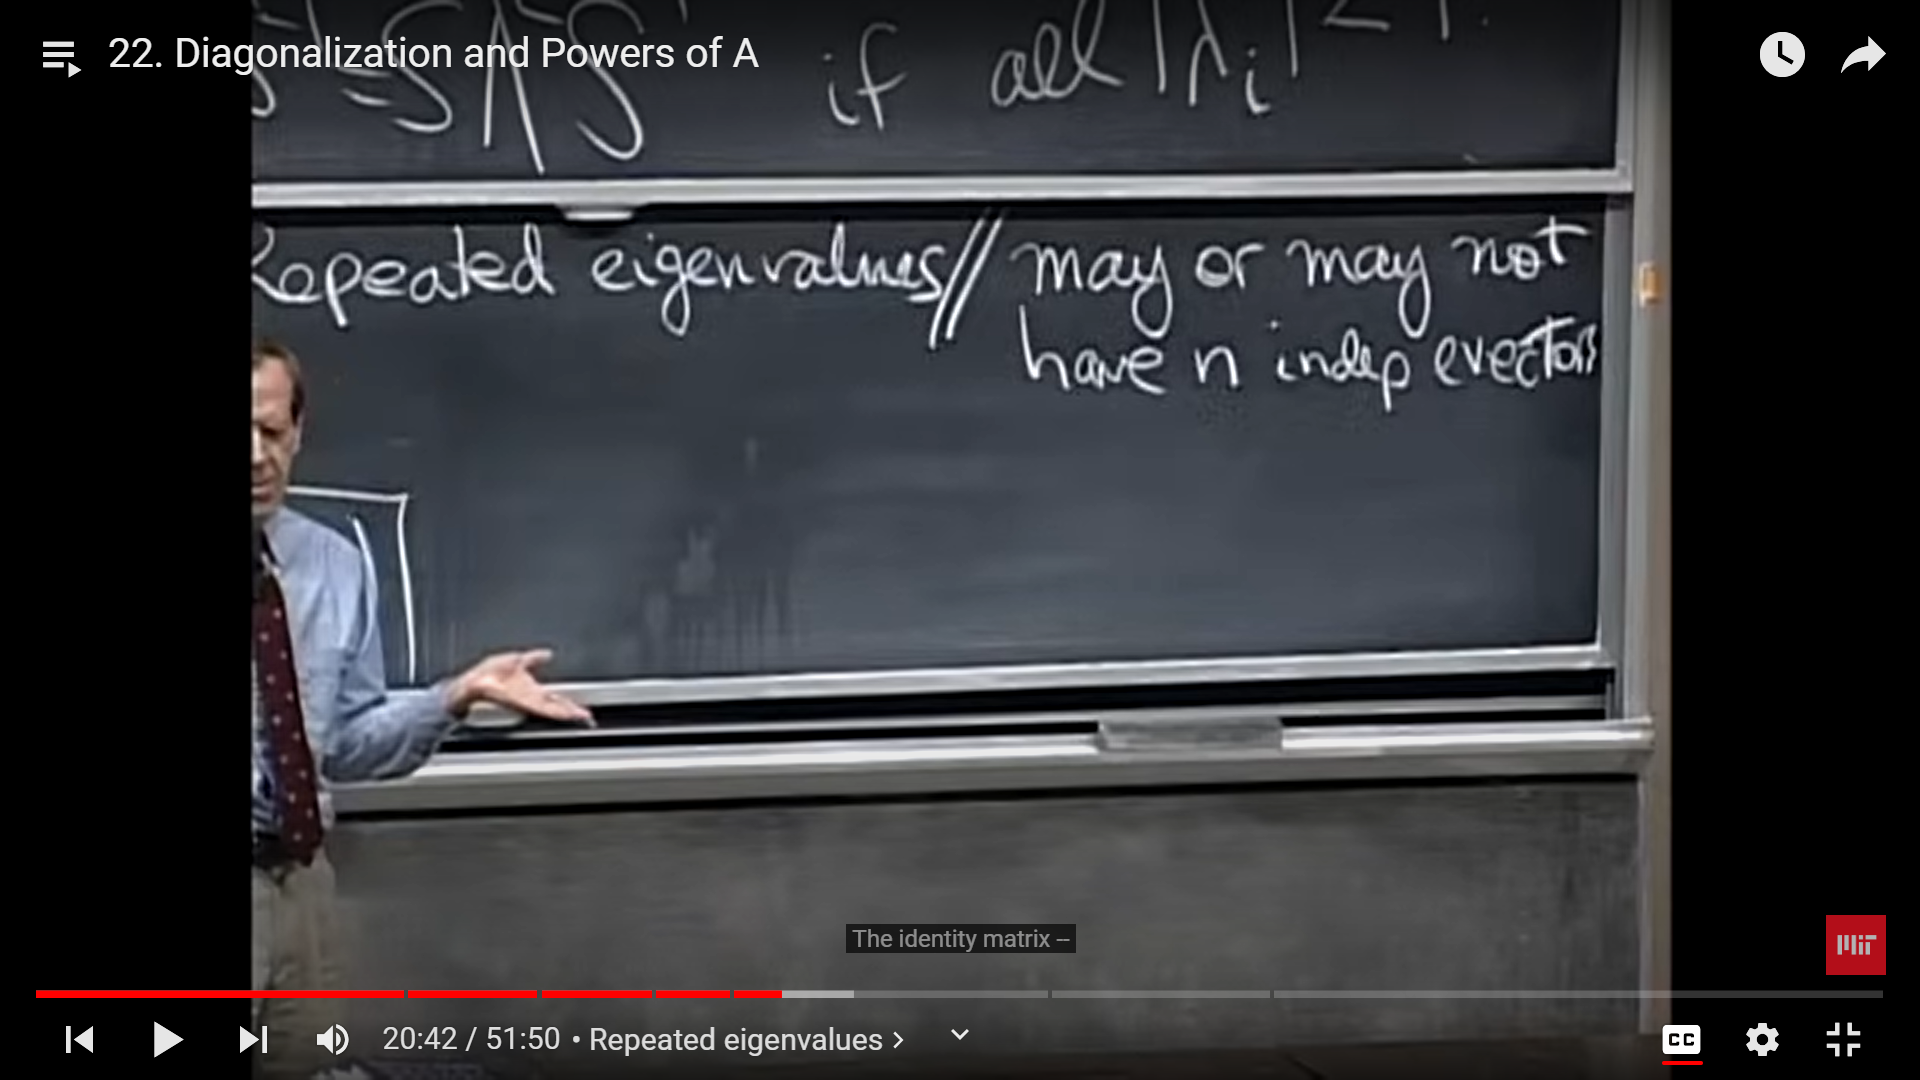 22. Diagonalization and Powers of A
if all |λi| < 1.
Repeated eigenvalues // may or may not
have n indep evectors
The identity matrix --
MIT
20:42 / 51:50 • Repeated eigenvalues >
CC